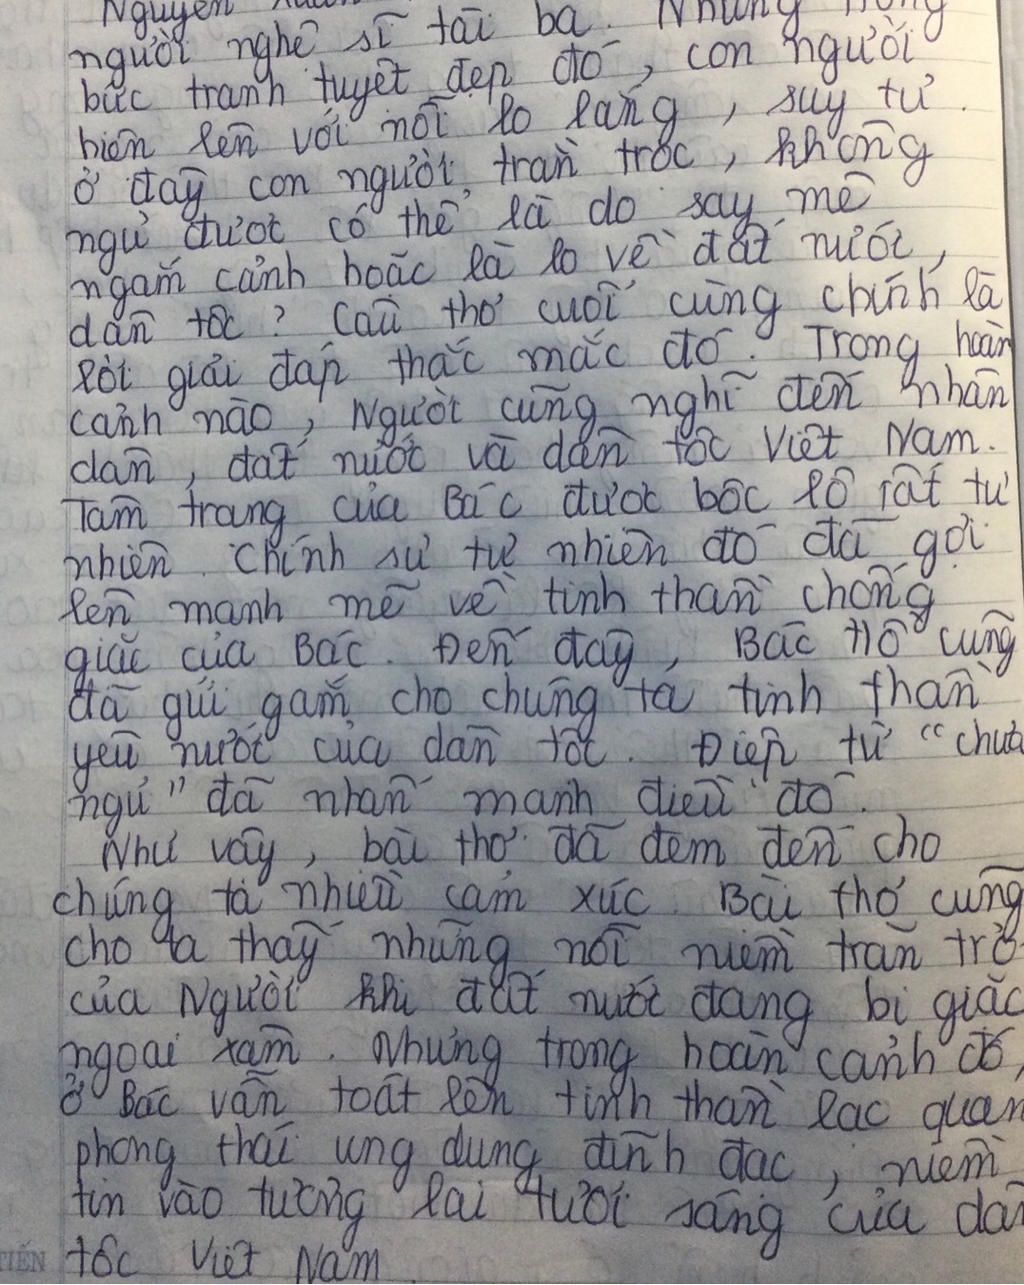 Nguyên
người nghệ sĩ tài ba. Nhưng trong
bức tranh tuyệt đẹp đó, con người
hiện lên với nỗi lo lắng, suy tư.
ở đây con người trằn trọc, không
ngủ được có thể là do say mê
ngắm cảnh hoặc là lo về đất nước,
dân tộc? Câu thơ cuối cùng chính là
lời giải đáp thắc mắc đó. Trong hoàn
cảnh nào, Người cũng nghĩ đến nhân
dân, đất nước và dân tộc Việt Nam.
Tâm trạng của Bác được bộc lộ rất tự
nhiên. Chính sự tự nhiên đó đã gợi
lên mạnh mẽ về tinh thần chống
giặc của Bác. Đến đây, Bác Hồ cũng
đã gửi gắm cho chúng ta tinh thần
yêu nước của dân tộc. Điệp từ "chưa
ngủ" đã nhấn mạnh điều đó.
Như vậy, bài thơ đã đem đến cho
chúng ta nhiều cảm xúc. Bài thơ cũng
cho ta thấy những nỗi niềm trăn trở
của Người khi đất nước đang bị giặc
ngoại xâm. Nhưng trong hoàn cảnh đó,
ở Bác vẫn toát lên tinh thần lạc quan
phong thái ung dung đĩnh đạc, niềm
tin vào tương lai tươi sáng của dân
tộc Việt Nam
TIẾN